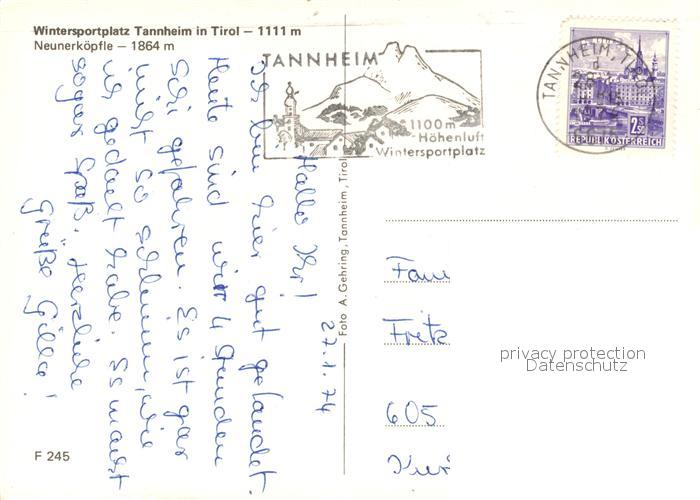 Wintersportplatz Tannheim in Tirol – 1111 m
Neunerköpfle – 1864 m
TANNHEIM
1100m
Höhenluft
Wintersportplatz
TANNHEIM, TI
2 S 50
REPUBLIK ÖSTERREICH
27.1.74
Hallo Ihr!
Ich bin hier gut gelandet.
Heute sind wir 4 Stunden
Ski gefahren. Es ist gar
nicht so schlimm, wie
ich gedacht habe. Es macht
sogar Spaß. Herzliche
Grüße Gilla!
Foto A. Gehring, Tannheim, Tirol
Fam
Fritz
605
privacy protection
Datenschutz
F 245